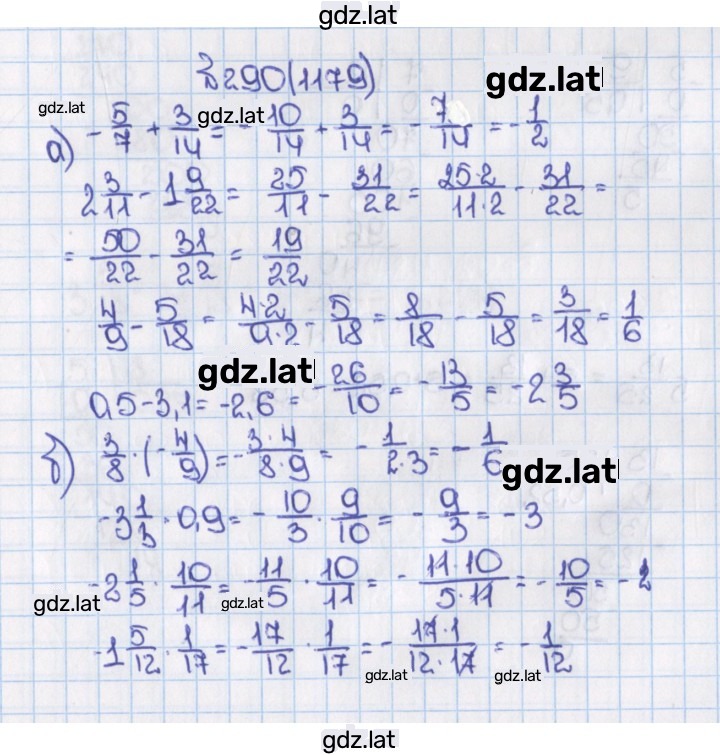 gdz.lat
№290(1179)
gdz.lat
gdz.lat
gdz.lat
а) -5/7 + 3/14 = -10/14 + 3/14 = -7/14 = -1/2
2 3/11 - 1 9/22 = 25/11 - 31/22 = 25·2/11·2 - 31/22 =
= 50/22 - 31/22 = 19/22
4/9 - 5/18 = 4·2/9·2 - 5/18 = 8/18 - 5/18 = 3/18 = 1/6
gdz.lat
0,5-3,1 = -2,6 = -26/10 = -13/5 = -2 3/5
б) 3/8 · (-4/9) = -3·4/8·9 = -1/2·3 = -1/6
gdz.lat
-3 1/3 · 0,9 = -10/3 · 9/10 = -9/3 = -3
-2 1/5 · 10/11 = -11/5 · 10/11 = -11·10/5·11 = -10/5 = -2
gdz.lat
gdz.lat
-1 5/12 · 1/17 = -17/12 · 1/17 = -17·1/12·17 = -1/12
gdz.lat
gdz.lat
gdz.lat